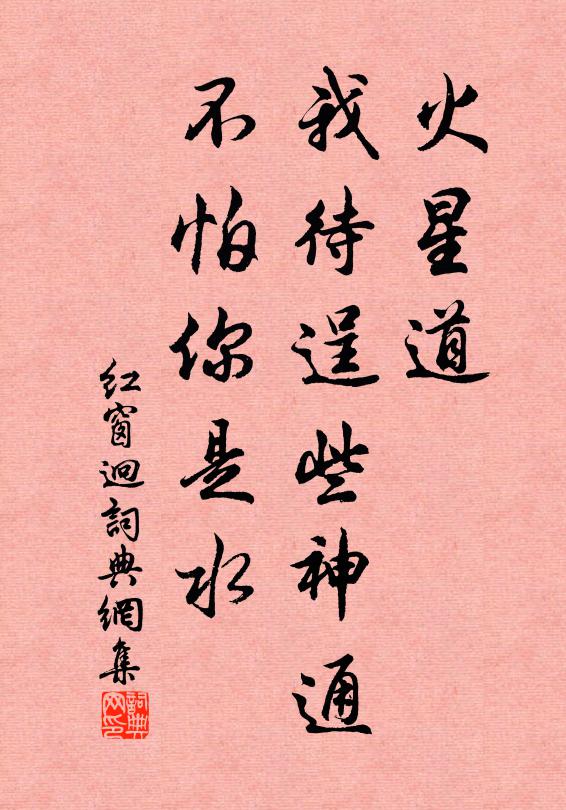 火星道
我待逞些神通
不怕你是水
紅窗迥詞典網集
詞典网印